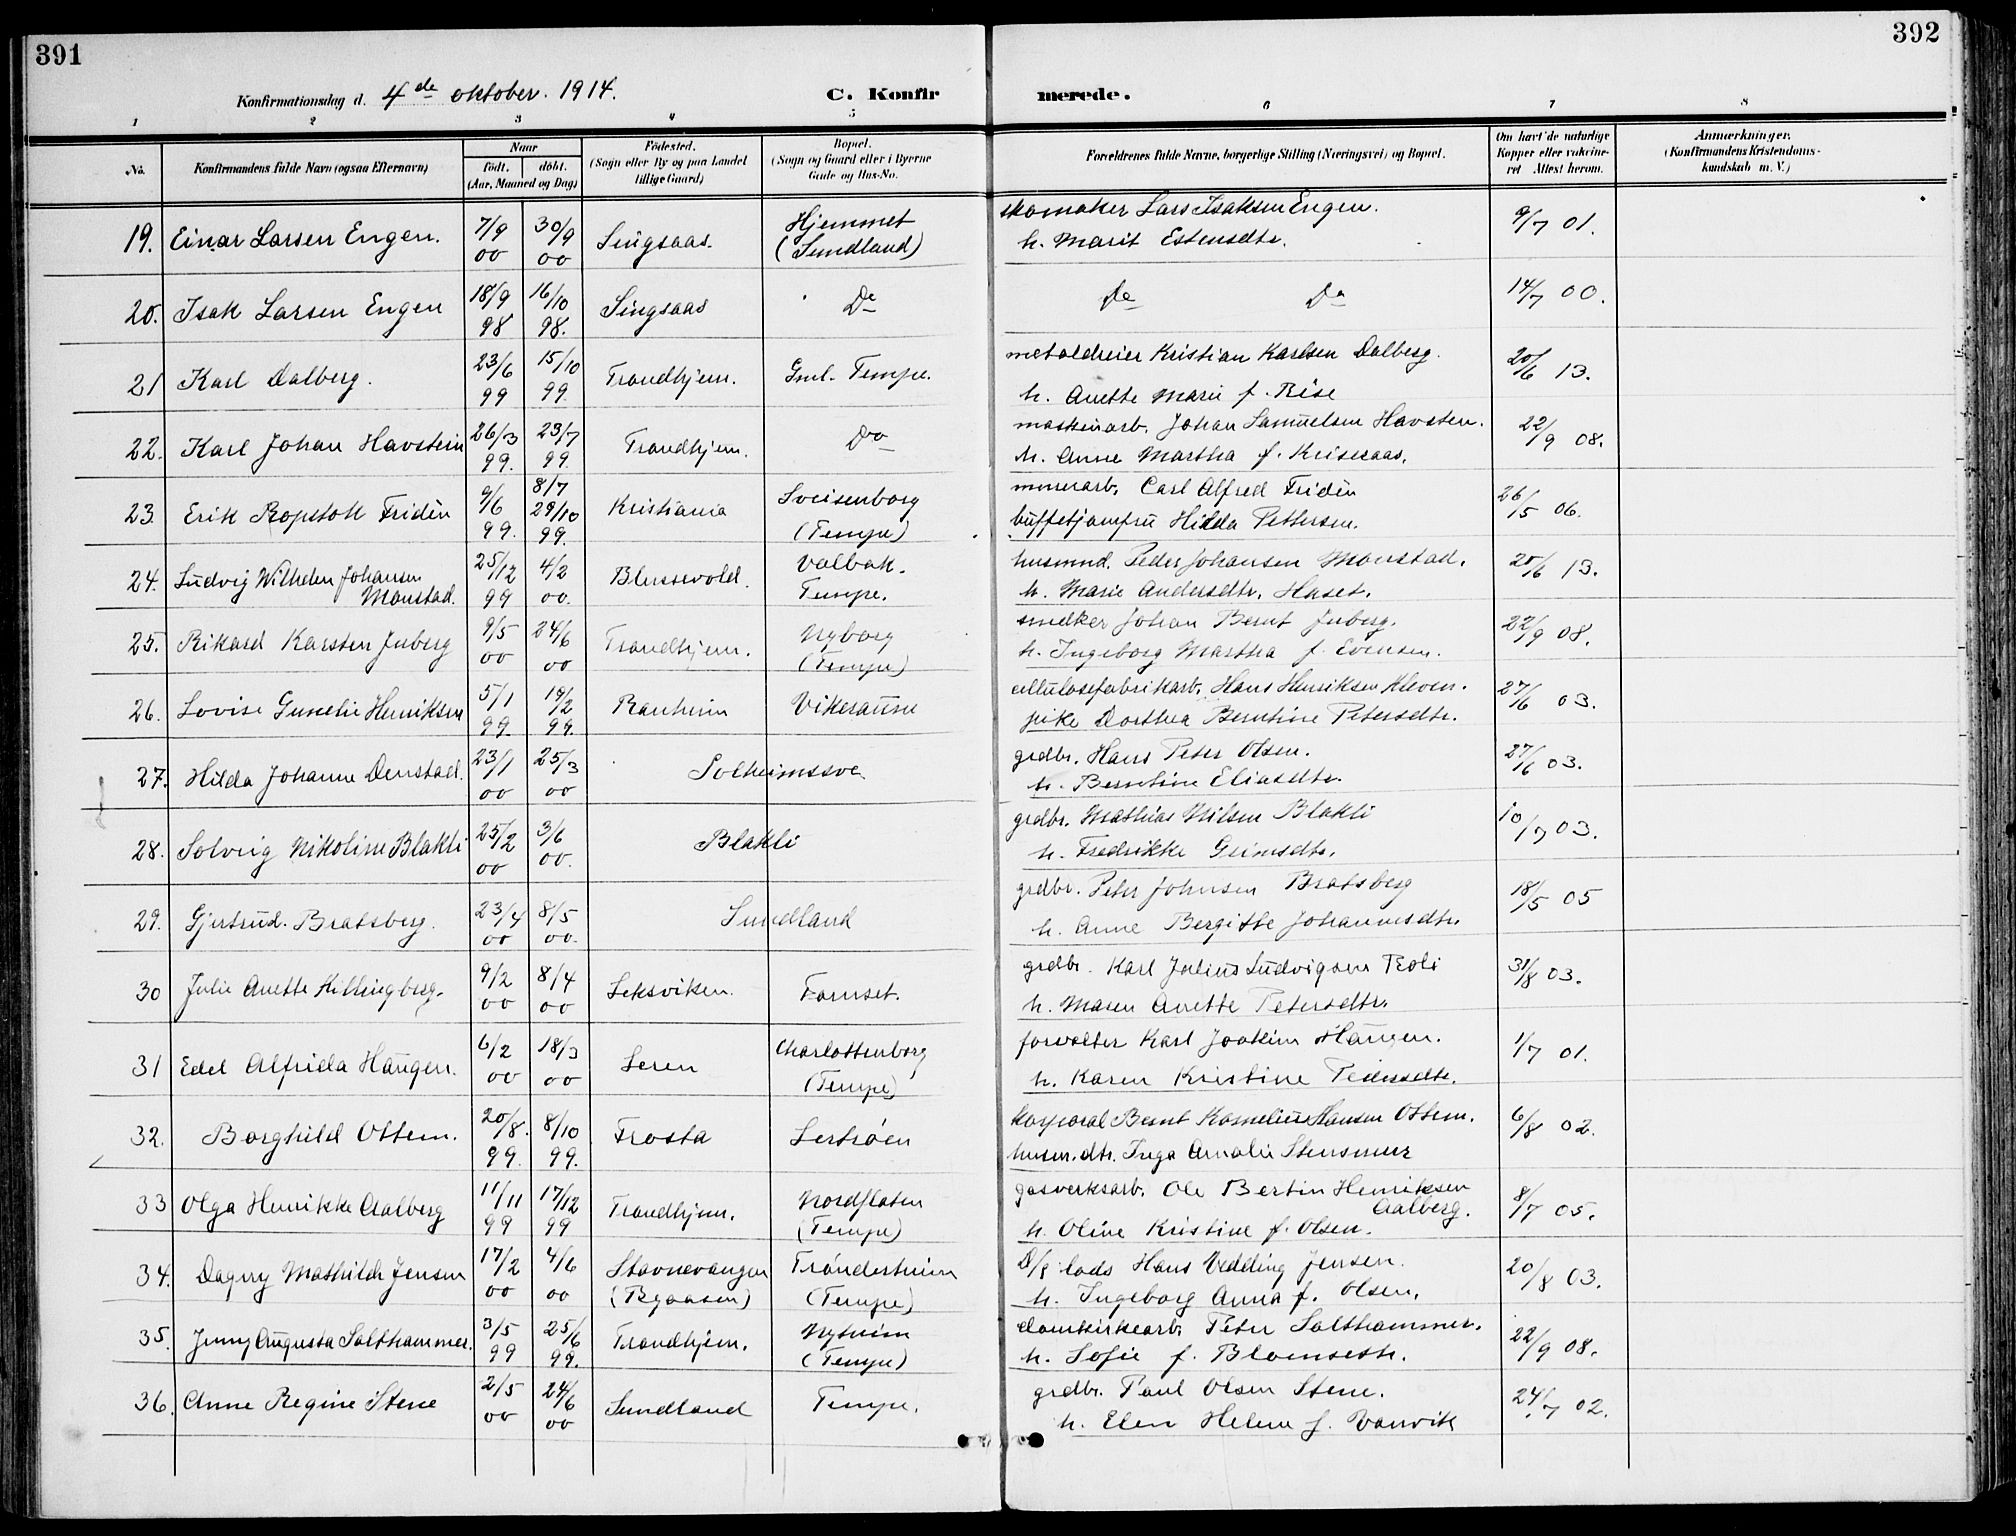 391
392
Konfirmationsdag d. 4de oktober. 1914.
C. Konfir
merede.
1 2 3 4 5 6 7 8
No. Konfirmandens fulde Navn (ogsaa Efternavn) Naar født. døbt. (Aar, Maaned og Dag) Fødested. (Sogn eller By og paa Landet tillige Gaard) Bopæl. (Sogn og Gaard eller i Byerne Gade og Hus-No. Forældrenes fulde Navne, borgerlige Stilling (Næringsvei) og Bopæl. Om havt de naturlige Kopper eller vakcineret Attest herom. Anmærkninger. (Konfirmandens Kristendomskundskab m. V.)
19. Einar Larsen Engen. 7/9 00 30/9 00 Singsaas. Hjemmet (Sundland) skomaker Lars Isaksen Engen. 9/7 01.
h. Marit Estensdtr.
20. Isak Larsen Engen 18/9 98 16/10 98. Singsaas Do Do Do 14/7 00.
21 Karl Dalberg. 23/6 99 15/10 99. Trondhjem. Gml. Tempe. metaldreier Kristian Karlsen Dalberg. 20/6 13.
h. Anette Marie f. Riise
22. Karl Johan Havstein 26/3 99. 23/7 99. Trondhjem. Do maskinarb. Johan Samuelsen Havsten. 22/9 08.
h. Anne Martha f.
23. Erik Ropstok Fridén 9/6 99. 8/7 29/10 99. Kristiania Sveisenborg (Tempe) murerarb. Carl Alfred Fridén 26/5 06.
buffetjomfru Hilda Pettersen.
24. Ludvig Wilhelm Johansen Monstad. 25/12 99 4/2 00. Blussevold. Valbak. Tempe. husmnd. Peder Johansen Monstad. 20/6 13.
h. Marie Andersdtr. Huset.
25. Rikard Karsten Juberg 9/5 00 24/6 00 Trondhjem. Nyborg (Tempe) snedker Johan Bernt Juberg. 22/9 08.
h. Ingeborg Martha f. Evensen.
26. Lovise Gunelie Henriksen 5/1 99. 19/2 99. Ranheim Vikeraune cellulosefabrikarb. Hans Henriksen Kleven. 27/6 03.
pike Dorthea Berntine Petersdtr.
27. Hilda Johanne Denstad. 23/1 00 25/3 00 Solheimssve. grdbr. Hans Peter Olsen. 27/6 03.
h. Berntine Eliasdtr.
28. Solveig Nikoline Blakli 25/2 00 3/6 00. Blakli grdbr. Mathias Nilsen Blakli 10/7 03.
h. Fredrikke Grimsdtr.
29. Gjertrud. Bratsberg. 23/4 00 8/5 00. Sundland grdbr. Peter Johnsen Bratsberg 18/5 05
h. Anne Bergitte Johannesdtr.
30 Julie Anette Hillingberg. 9/2 00 8/4 00 Leksviken. Fornset. grdbr. Karl Julius Ludvigsen Troli 31/8 03.
h. Maren Anette Petersdtr.
31 Edel Alfrida Haugen. 6/2 00 18/3 00 Leren Charlottenborg (Tempe) forvalter Karl Joakim Haugen. 1/7 01.
h. Karen Kristine Pedersdtr.
32. Borghild Ottem. 20/8. 99. 8/10 99. Frosta Lertrøen korporal Bernt Kornelius Hansen Ottem. 6/8 02.
husm. dtr. Inga Amalie Stensmur
33 Olga Henrikke Aalberg 11/11 99 17/12 99 Trondhjem. Nordflaten (Tempe) gasverksarb. Ole Bertin Henriksen Aalberg. 8/7 05.
h. Oline Kristine f. Olsen.
34. Dagny Mathilde Jensen 17/2 00 4/6 00 Stavnevangen (Byaasen) Trønderheim (Tempe) D/s lods Hans Vedding Jensen. 20/8 03.
h. Ingeborg Anna f. Olsen.
35. Jenny Augusta Salthammer. 3/5 99 25/6 99. Trondhjem. Nyheim (Tempe) domkirkearb. Peter Salthammer. 22/9 08.
h. Sofie f. Blomseth.
36. Anne Regine Stene 2/5 00 24/6 00 Sundland Tempe. grdbr. Paul Olsen Stene. 24/7 02.
h. Elen Helene f. Vanvik